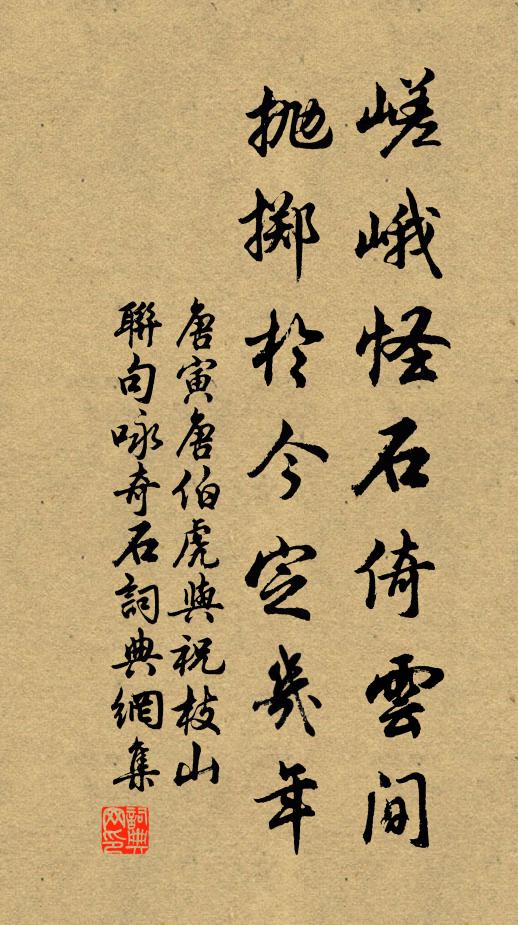 嵯峨怪石倚雲間
抛擲於今定幾年
唐寅唐伯虎與祝枝山
聯句咏奇石詞典網集
詞典网印